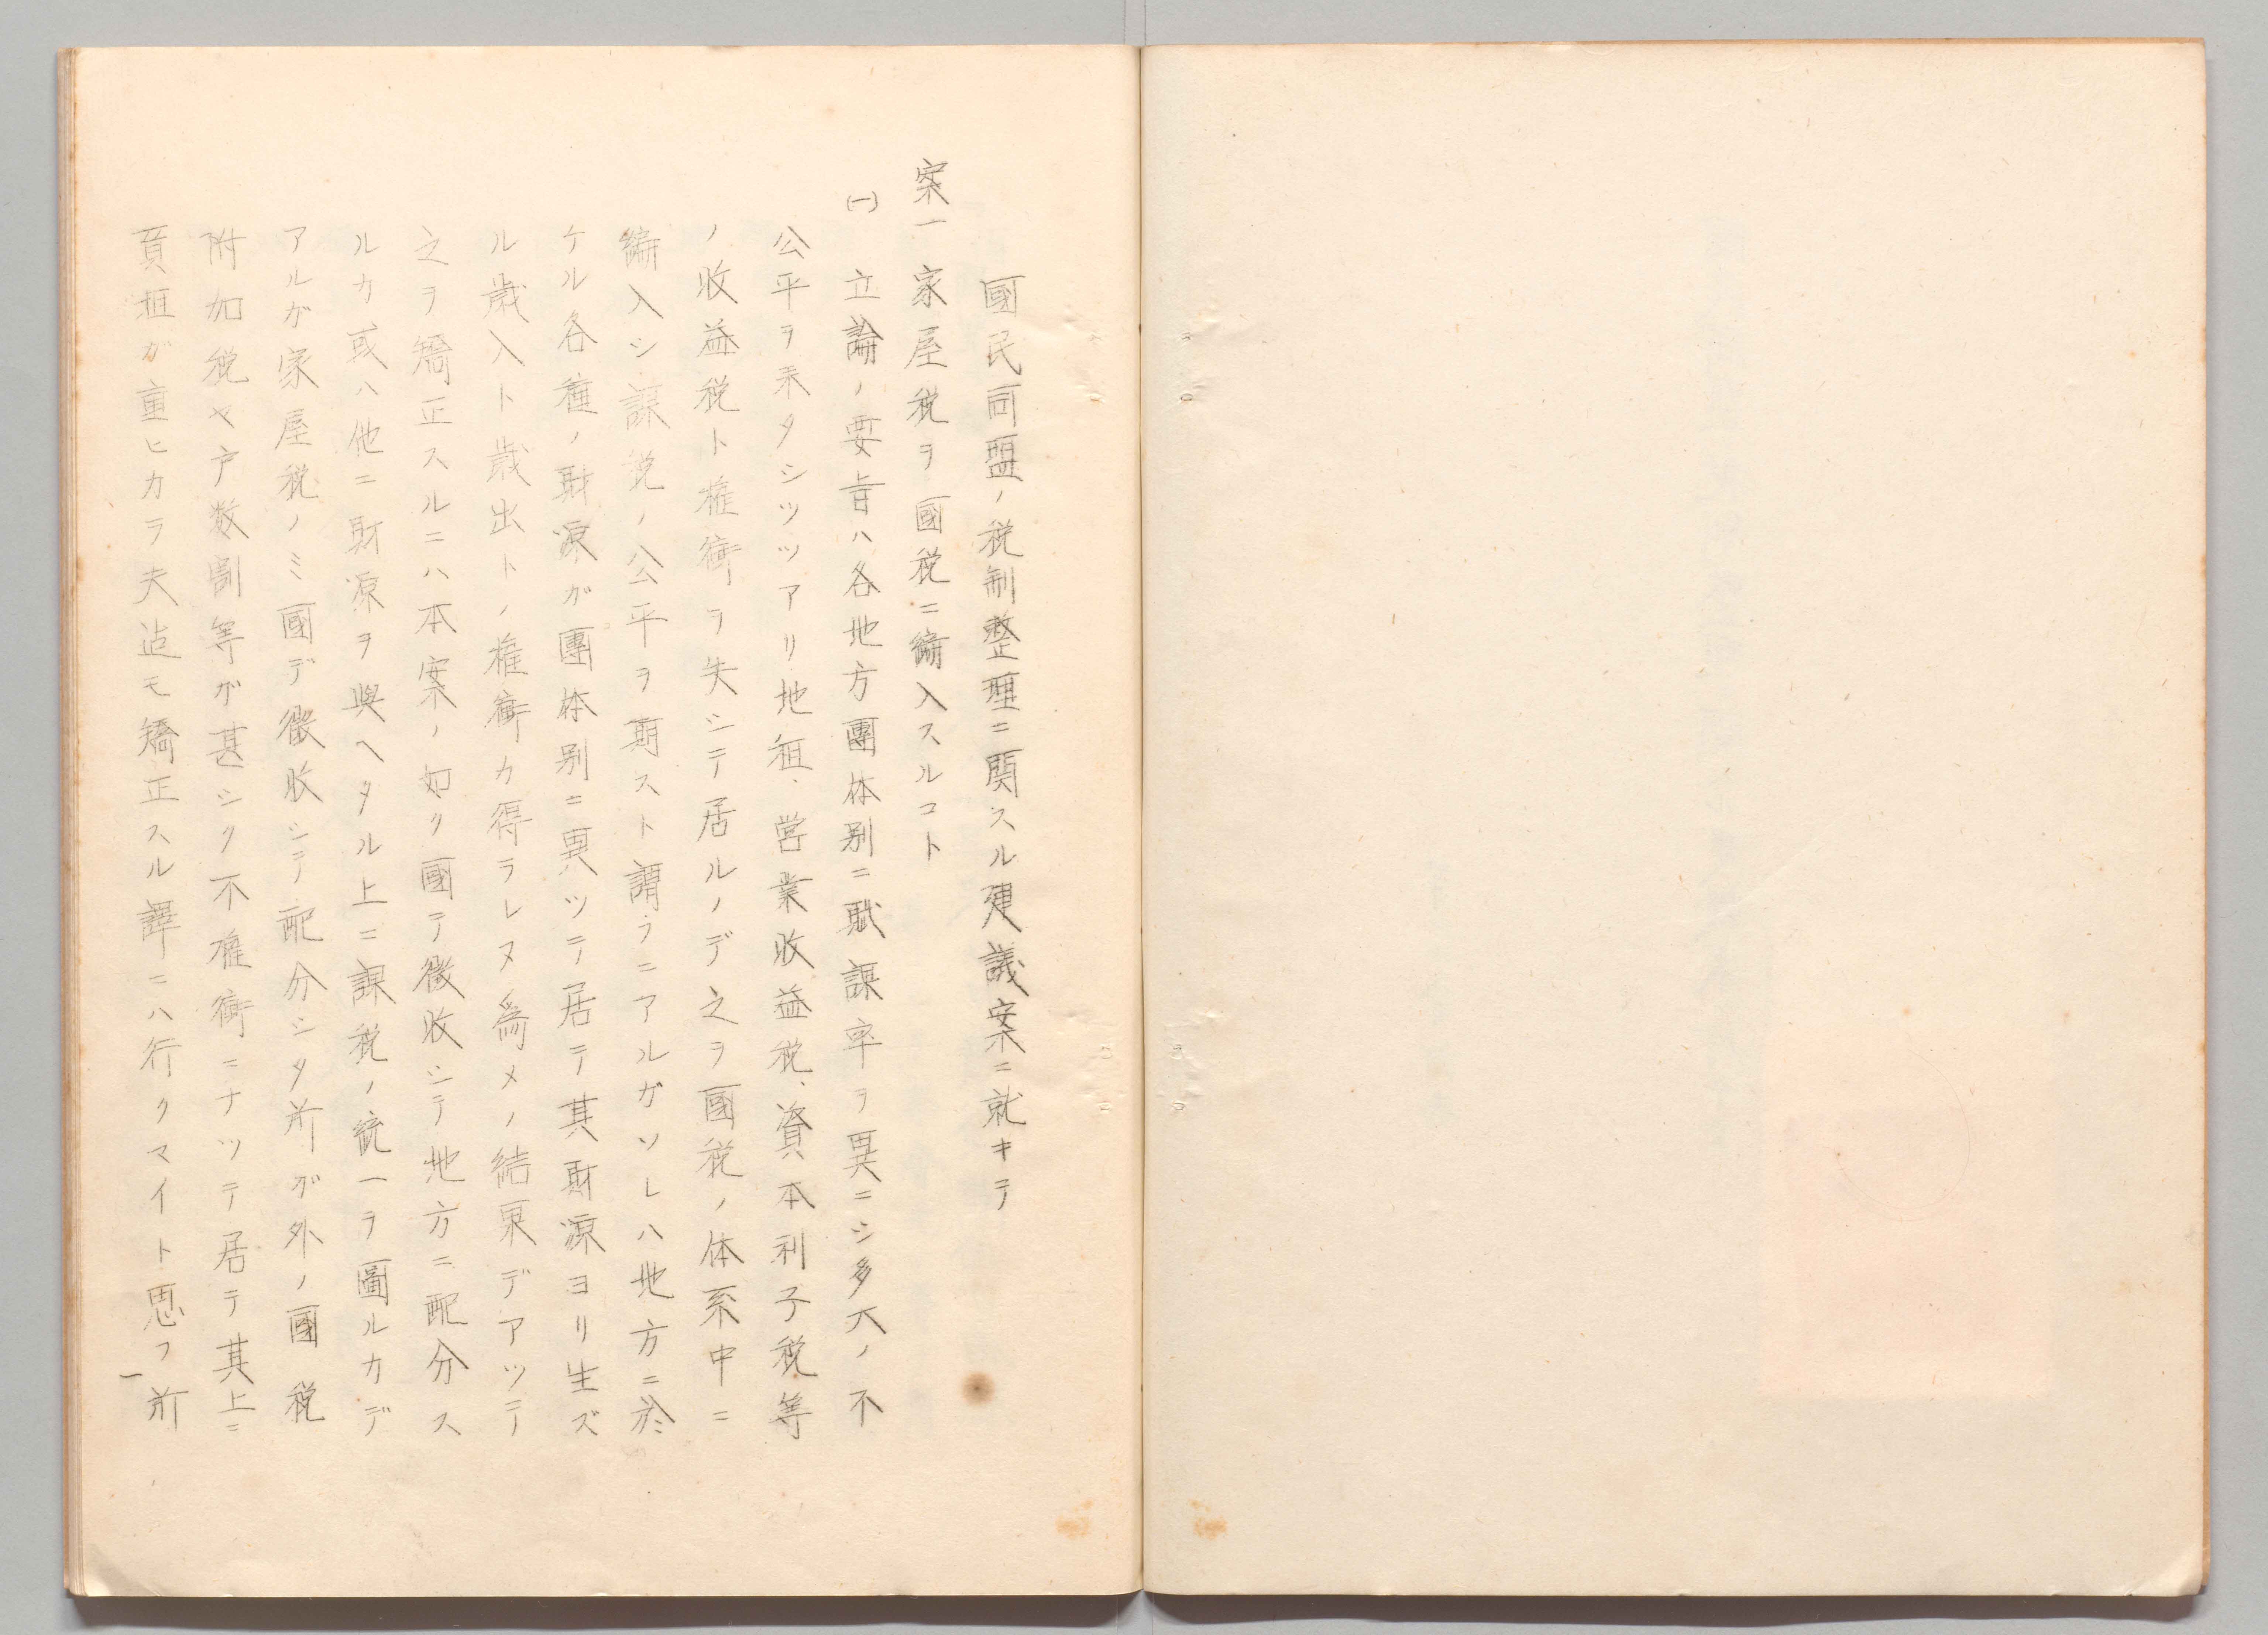 國民同盟ノ税制整理ニ関スル建議案ニ就キテ
案一 家屋税ヲ國税ニ編入スルコト
(一) 立論ノ要旨ハ各地方團体別ニ賦課率ヲ異ニシ多大ノ不
公平ヲ来タシツツアリ地租、営業收益税、資本利子税等
ノ收益税ト権衡ヲ失シテ居ルノデ之ヲ國税ノ体系中ニ
編入シ課税ノ公平ヲ期スト謂フニアルガソレハ地方ニ於
ケル各種ノ財源ガ團体別ニ異ツテ居テ其財源ヨリ生ズ
ル歳入ト歳出トノ権衡カ得ラレヌ為メノ結果デアツテ
之ヲ矯正スルニハ本案ノ如ク國テ徴收シテ地方ニ配分ス
ルカ或ハ他ニ財源ヲ與ヘタル上ニ課税ノ統一ヲ圖ルカデ
アルガ家屋税ノミ國デ徴收シテ配分シタ所ガ外ノ國税
附加税ヤ戸数割等ガ甚シク不権衡ニナツテ居テ其上ニ
負担ガ重ヒカラ夫迠モ矯正スル譯ニハ行クマイト思フ所
一